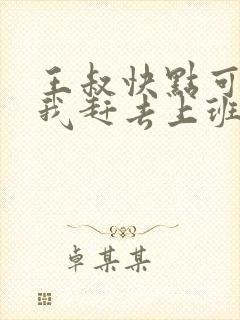 王叔快點可
我赶去上班
卓某某